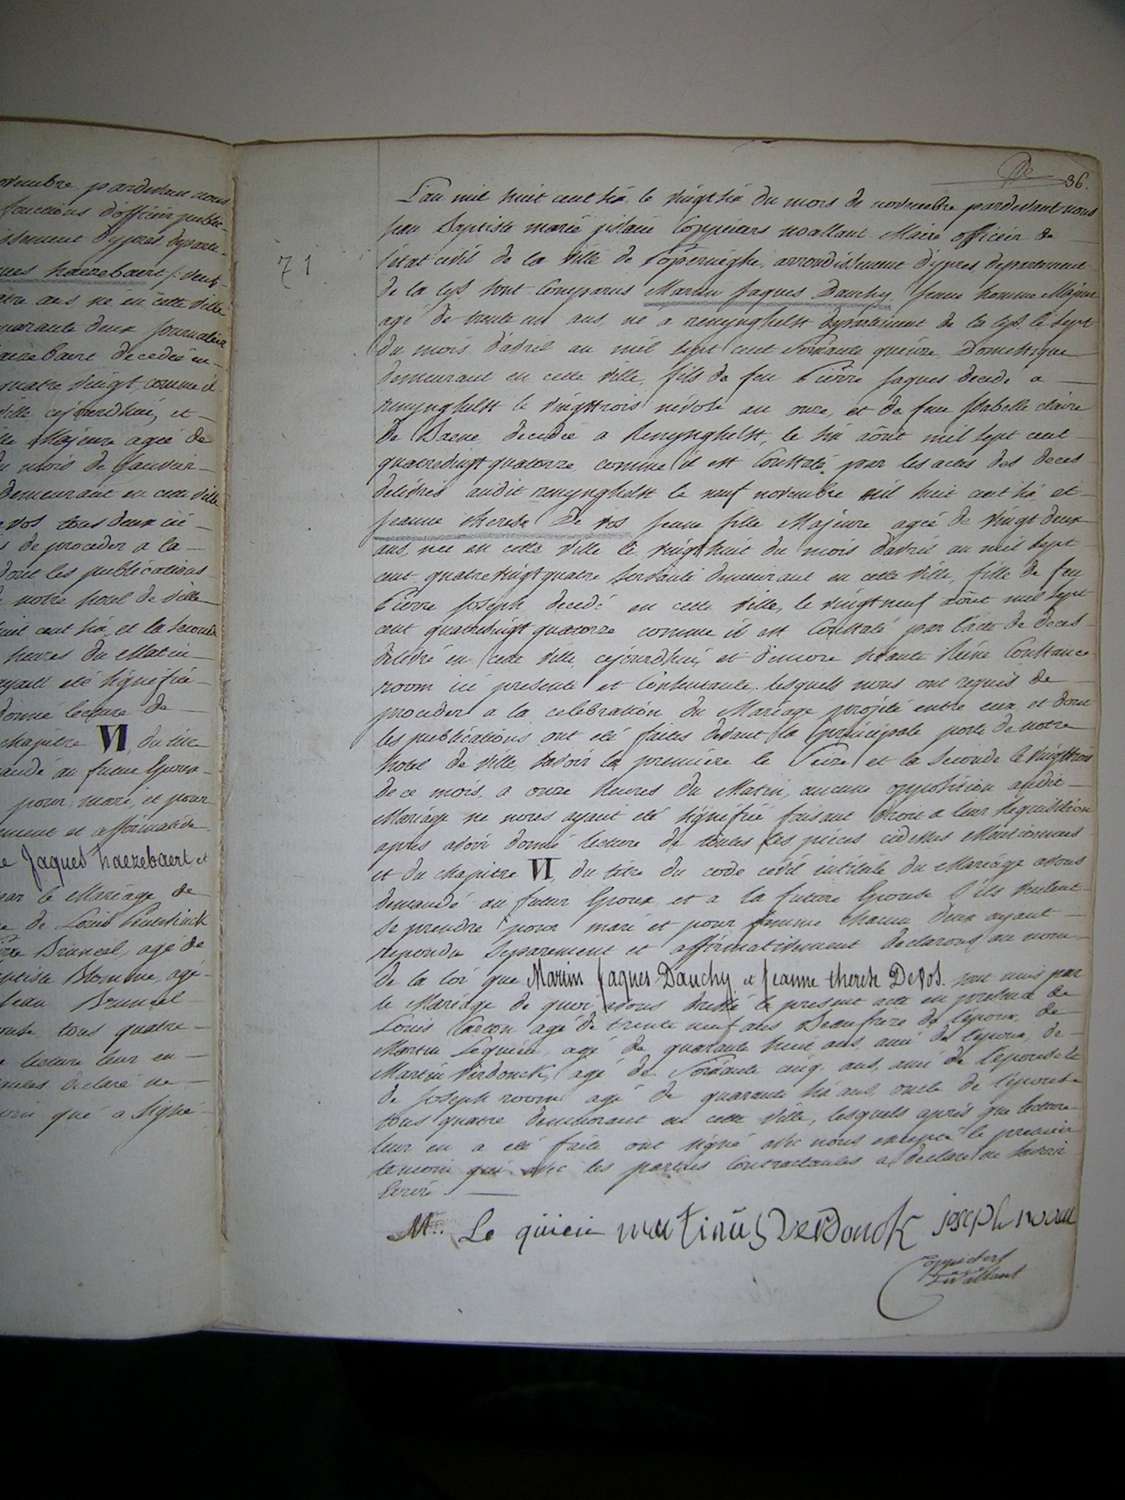 ovembre pardevant nous
fonctions d'officier public
issement d'ypres departe-
ques haezebaert
ans né en cette ville
quarante deux journalier
aezebaert decedée en
quatre vingt comme il
ville cejourdhui, et
Majeure agée de
mois de Janvier
demeurant en cette ville
vos tous deux ici
de proceder a la
dont les publications
notre hotel de ville
huit cent six et la seconde
heures du Matin
ayant eté signifiée
donné lecture de
chapitre VI du titre
demandé au futur Epoux
pour mari et pour
ment et affirmative
Jaques haezebaert et
par le Mariage de
de Louis
Bruneel, agé de
Baptiste Blomme, agé
Jean Bruneel
tous quatre
lecture leur en
declaré ne
qui a signé
36.
71
L'an mil huit cent six le vingt six du mois de novembre pardevant nous
Jean Baptiste marie Coppieters wallant Maire officier de
l'etat civil de la ville de Poperinghe, arrondissement d'ypres departement
de la Lys sont Comparus Martin Jaques Dauchy, Jeune homme Majeur
agé de trente un ans, né a renynghelst departement de la Lys, le sept
du mois d'avril an mil sept cent soixante quinze Domestique
demeurant en cette ville, fils de feu Pierre Jaques decedé a
renynghelst le vingttrois nivose an onze, et de feue Isabelle claire
De Baene decedée a Renynghelst, le six août mil sept cent
quatrevingt quatorze comme il est Constaté par les actes des deces
delivrés audit renynghelst le neuf novembre mil huit cent six et
jeanne therese De vos jeune fille Majeure agée de vingt deux
ans, née en cette ville le vingthuit du mois d'avril an mil sept
cent quatrevingtquatre servante demeurant en cette ville, fille de feu
Pierre Joseph decedé en cette ville, le vingtneuf août mil sept
cent quatrevingt quatorze comme il est Constaté par l'acte de deces
delivré en cette ville cejourdhui et d'encore vivante Reine Constance
room ici presente et Consentante, lesquels nous ont requis de
proceder a la celebration du Mariage projeté entre eux et dont
les publications ont eté faites devant la principale porte de notre
hotel de ville savoir la premiere le Seize et la Seconde le vingttrois
de ce mois, a onze heures du Matin, aucune opposition audit
Mariage ne nous ayant eté signifiée faisant droit a leur Requisition
après avoir donné lecture de toutes les pièces cidessus Mentionnées
et du chapitre VI, du titre du code civil intitulé du Mariage avons
demandé au futur Epoux, et a la future Epouse s'ils veulent
se prendre pour mari et pour femme chacun d'eux ayant
repondu separement et affirmativement declarons au nom
de la loi que Martin Jaques Dauchy et Jeanne therese DeVos. sont unis par
le Mariage de quoi avons dressé le present acte en presence de
Louis Carton agé de trente neuf ans Beaufrere de l'epoux, de
Martin Lequien, agé de quarante huit ans, ami de l'epoux, de
Martin Verdonck, agé de soixante cinq ans, ami de l'epouse et
de Joseph room agé de quarante six ans, oncle de l'epouse
tous quatre demeurant en cette ville, lesquels après que lecture
leur en a eté faite ont signé avec nous excepté le premier
temoin qui avec les parties Contractantes a declaré ne savoir
Ecrire
M: Le quien martinus verdonck joseph room
Coppieters
Wallant